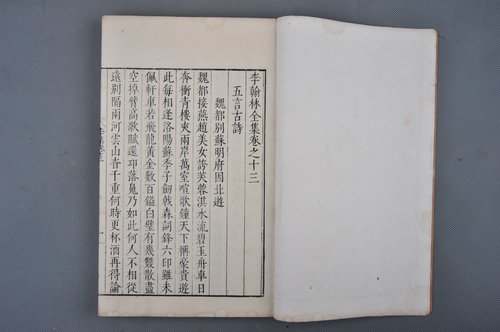 李翰林全集卷之十三
五言古詩
魏都別蘇明府因北遊
魏都接燕趙美女誇芙蓉淇水流碧玉舟車日
奔衝青樓夾兩岸萬室喧歌鐘天下稱豪貴遊
此每相逢洛陽蘇季子劒戟森詞鋒六印雖未
佩軒車若飛龍黃金數百鎰白璧有幾雙散盡
空掉臂高歌賦還邛落魄乃如此何人不相從
遠別隔兩河雲山杳千重何時更杯酒再得論